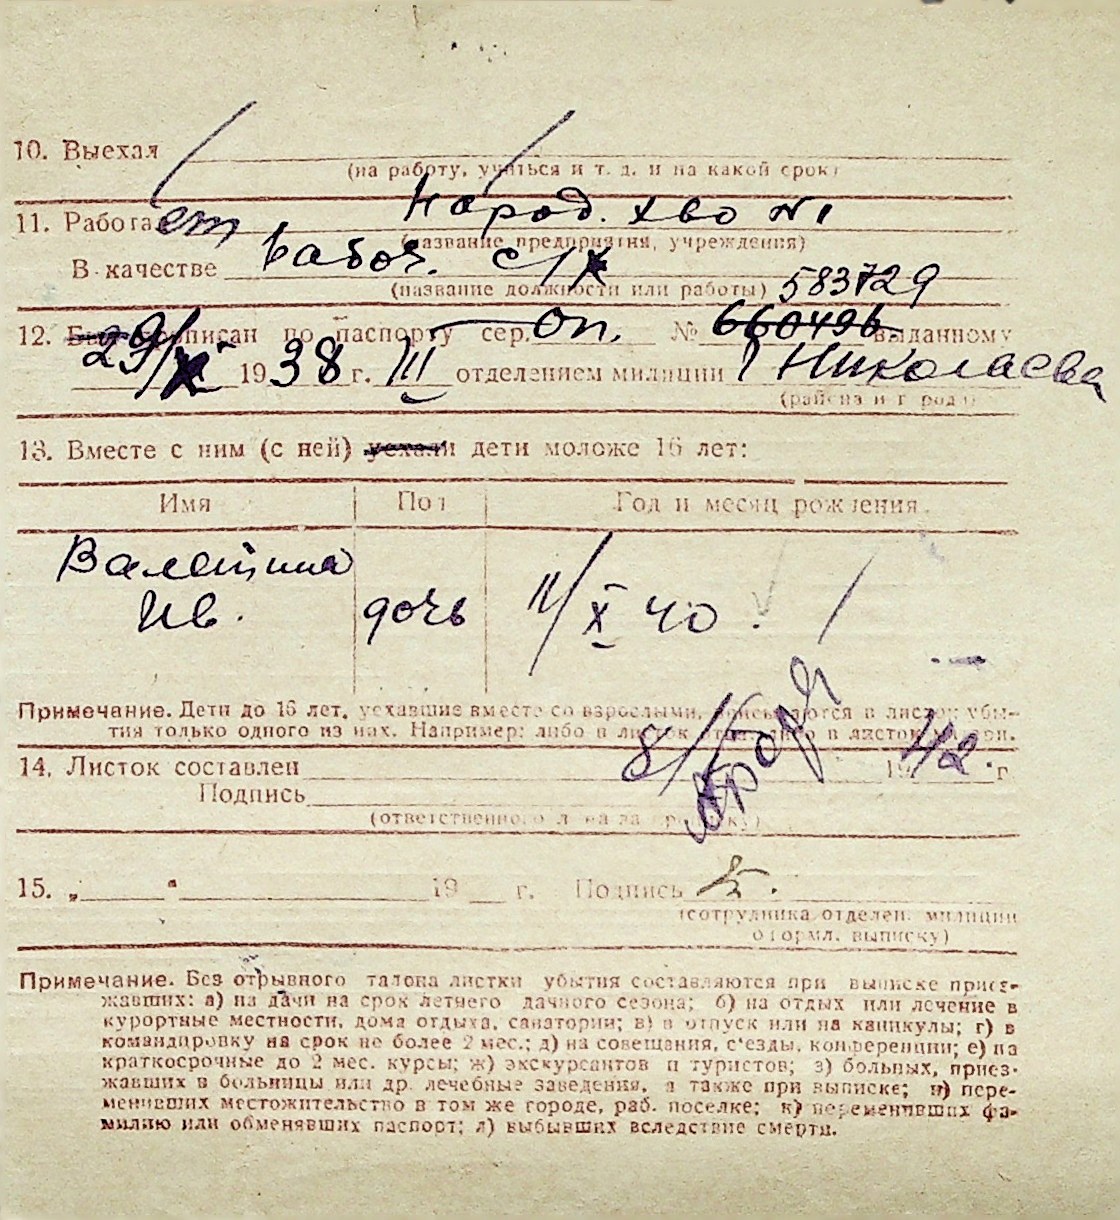 10. Выехал
(на работу, учиться и т. д. и на какой срок)
11. Работает Народ. хво №1
(название предприятия, учреждения)
В качестве рабоч. с/х
(название должности или работы) 583729
12. Был прописан по паспорту сер. оп. № 660496 выданному
29/XI 1938 г. III отделением милиции г Николаева
(района и города)
13. Вместе с ним (с ней) уехали дети моложе 16 лет:
Имя Пол Год и месяц рождения
Валентина
Ив. дочь 11/X 40.
Примечание. Дети до 16 лет, уехавшие вместе со взрослыми, вписываются в листок убы-
тия только одного из них. Например: либо в листок отца, либо в листок матери.
14. Листок составлен 8/ 1942. г.
Подпись
(ответственного лица за прописку)
15. „ " 19 г. Подпись
(сотрудника отделен. милиции
оформл. выписку)
Примечание. Без отрывного талона листки убытия составляются при выписке приез-
жавших: а) на дачи на срок летнего дачного сезона; б) на отдых или лечение в
курортные местности, дома отдыха, санатории; в) в отпуск или на каникулы; г) в
командировку на срок не более 2 мес.; д) на совещания, с'езды, конференции; е) на
краткосрочные до 2 мес. курсы; ж) экскурсантов и туристов; з) больных, приез-
жавших в больницы или др. лечебные заведения, а также при выписке; и) пере-
менивших местожительство в том же городе, раб. поселке; к) переменивших фа-
милию или обменявших паспорт; л) выбывших вследствие смерти.